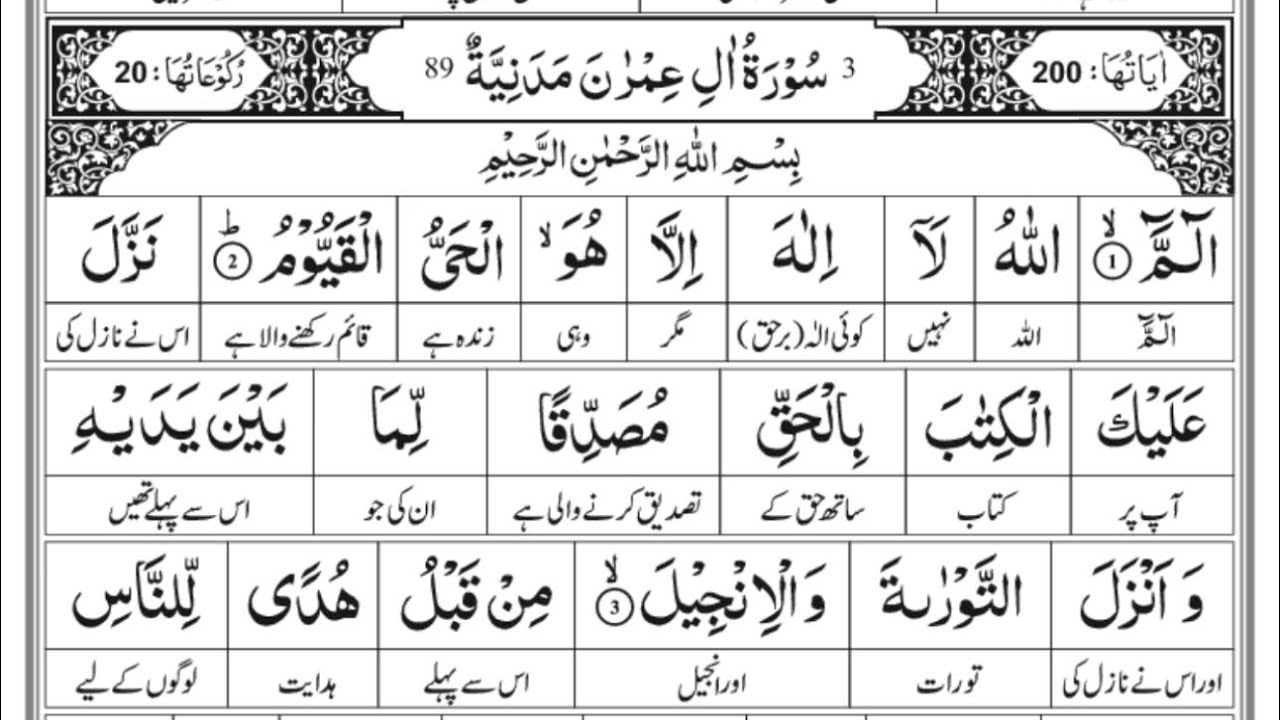 اٰیَاتُهَا: 200 3 سُوْرَةُ اٰلِ عِمْرٰنَ مَدَنِیَّةٌ 89 رُكُوْعَاتُهَا: 20
بِسْمِ اللّٰهِ الرَّحْمٰنِ الرَّحِیْمِ
الٓـمّٓ ۙ1 اللّٰهُ لَاۤ اِلٰهَ اِلَّا هُوَ ۙ الْحَیُّ الْقَیُّوْمُ ؕ2 نَزَّلَ
الٓـمّٓ اللہ نہیں کوئی الٰہ (برحق) مگر وہی زندہ ہے قائم رکھنے والا ہے اس نے نازل کی
عَلَیْكَ الْكِتٰبَ بِالْحَقِّ مُصَدِّقًا لِّمَا بَیْنَ یَدَیْهِ
آپ پر کتاب ساتھ حق کے تصدیق کرنے والی ہے ان کی جو اس سے پہلے تھیں
وَ اَنْزَلَ التَّوْرٰىةَ وَ الْاِنْجِیْلَ ۙ3 مِنْ قَبْلُ هُدًی لِّلنَّاسِ
اور اس نے نازل کی تورات اور انجیل اس سے پہلے ہدایت لوگوں کے لیے